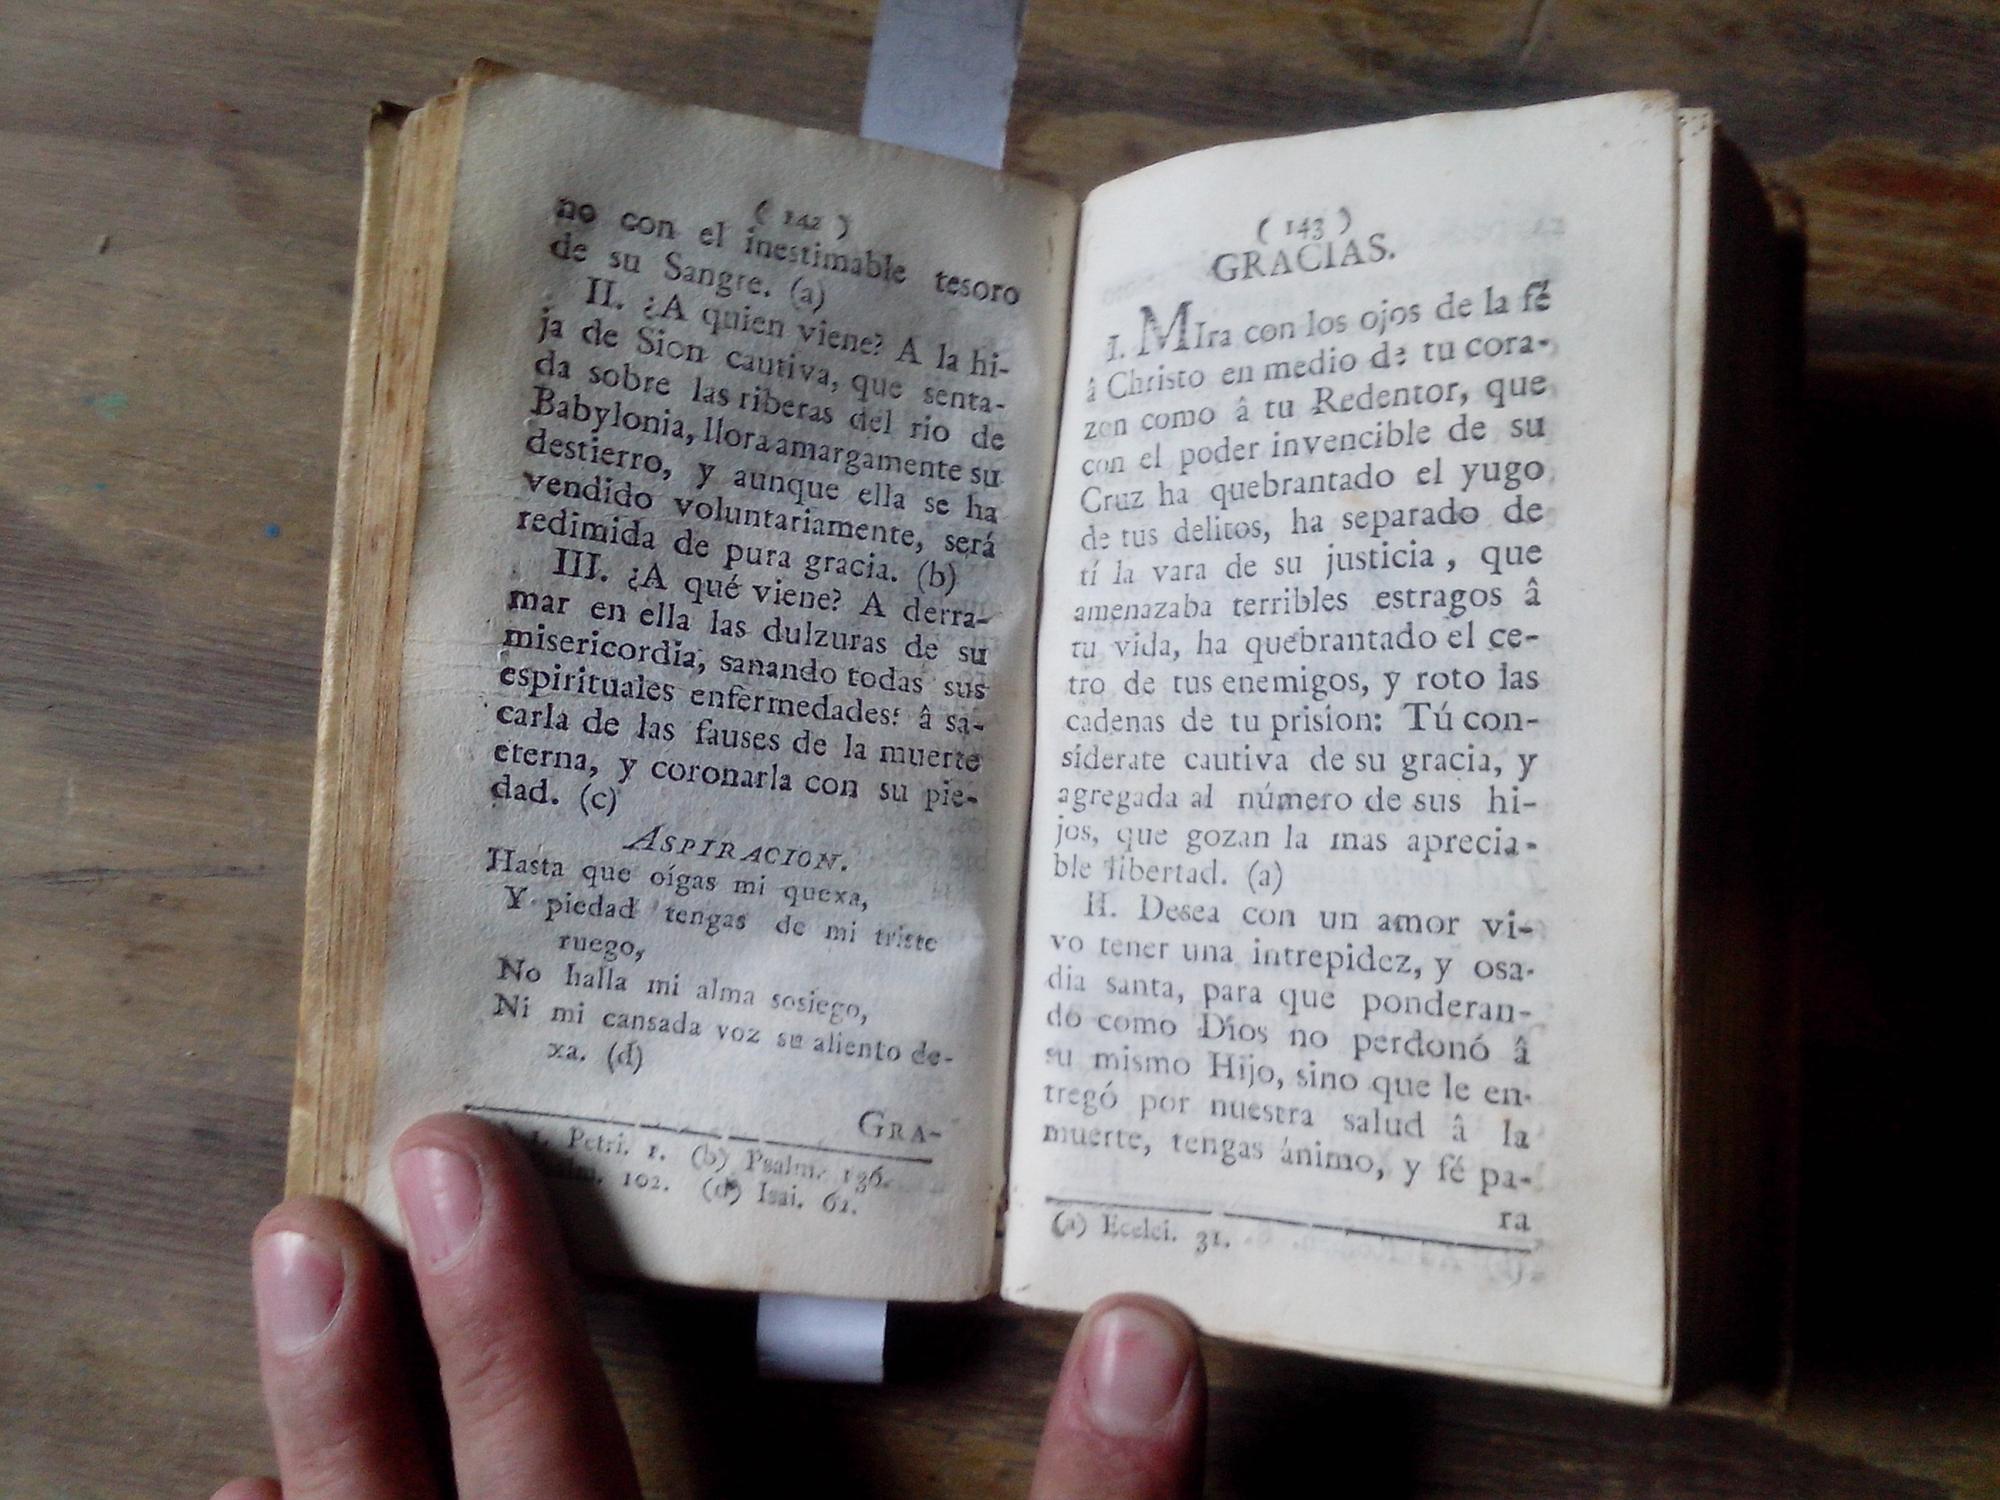 ( 142 )
no con el inestimable tesoro
de su Sangre. (a)
II. ¿A quien viene? A la hi-
ja de Sion cautiva, que senta-
da sobre las riberas del rio de
Babylonia, llora amargamente su
destierro, y aunque ella se ha
vendido voluntariamente, será
redimida de pura gracia. (b)
III. ¿A qué viene? A derra-
mar en ella las dulzuras de su
misericordia, sanando todas sus
espirituales enfermedades: â sa-
carla de las fauses de la muerte
eterna, y coronarla con su pie-
dad. (c)
ASPIRACION.
Hasta que oígas mi quexa,
Y piedad tengas de mi triste
ruego,
No halla mi alma sosiego,
Ni mi cansada voz su aliento de-
xa. (d)
GRA-
I. Petri. 1. (b) Psalm. 136.
102. (d) Isai. 62.
( 143 )
GRACIAS.
I. MIra con los ojos de la fé
â Christo en medio de tu cora-
zon como â tu Redentor, que
con el poder invencible de su
Cruz ha quebrantado el yugo
de tus delitos, ha separado de
tí la vara de su justicia, que
amenazaba terribles estragos â
tu vida, ha quebrantado el ce-
tro de tus enemigos, y roto las
cadenas de tu prision: Tú con-
siderate cautiva de su gracia, y
agregada al número de sus hi-
jos, que gozan la mas aprecia-
ble libertad. (a)
II. Desea con un amor vi-
vo tener una intrepidez, y osa-
dia santa, para que ponderan-
do como Dios no perdonó â
su mismo Hijo, sino que le en-
tregó por nuestra salud â la
muerte, tengas ánimo, y fé pa-
ra
(a) Ecelci. 31.